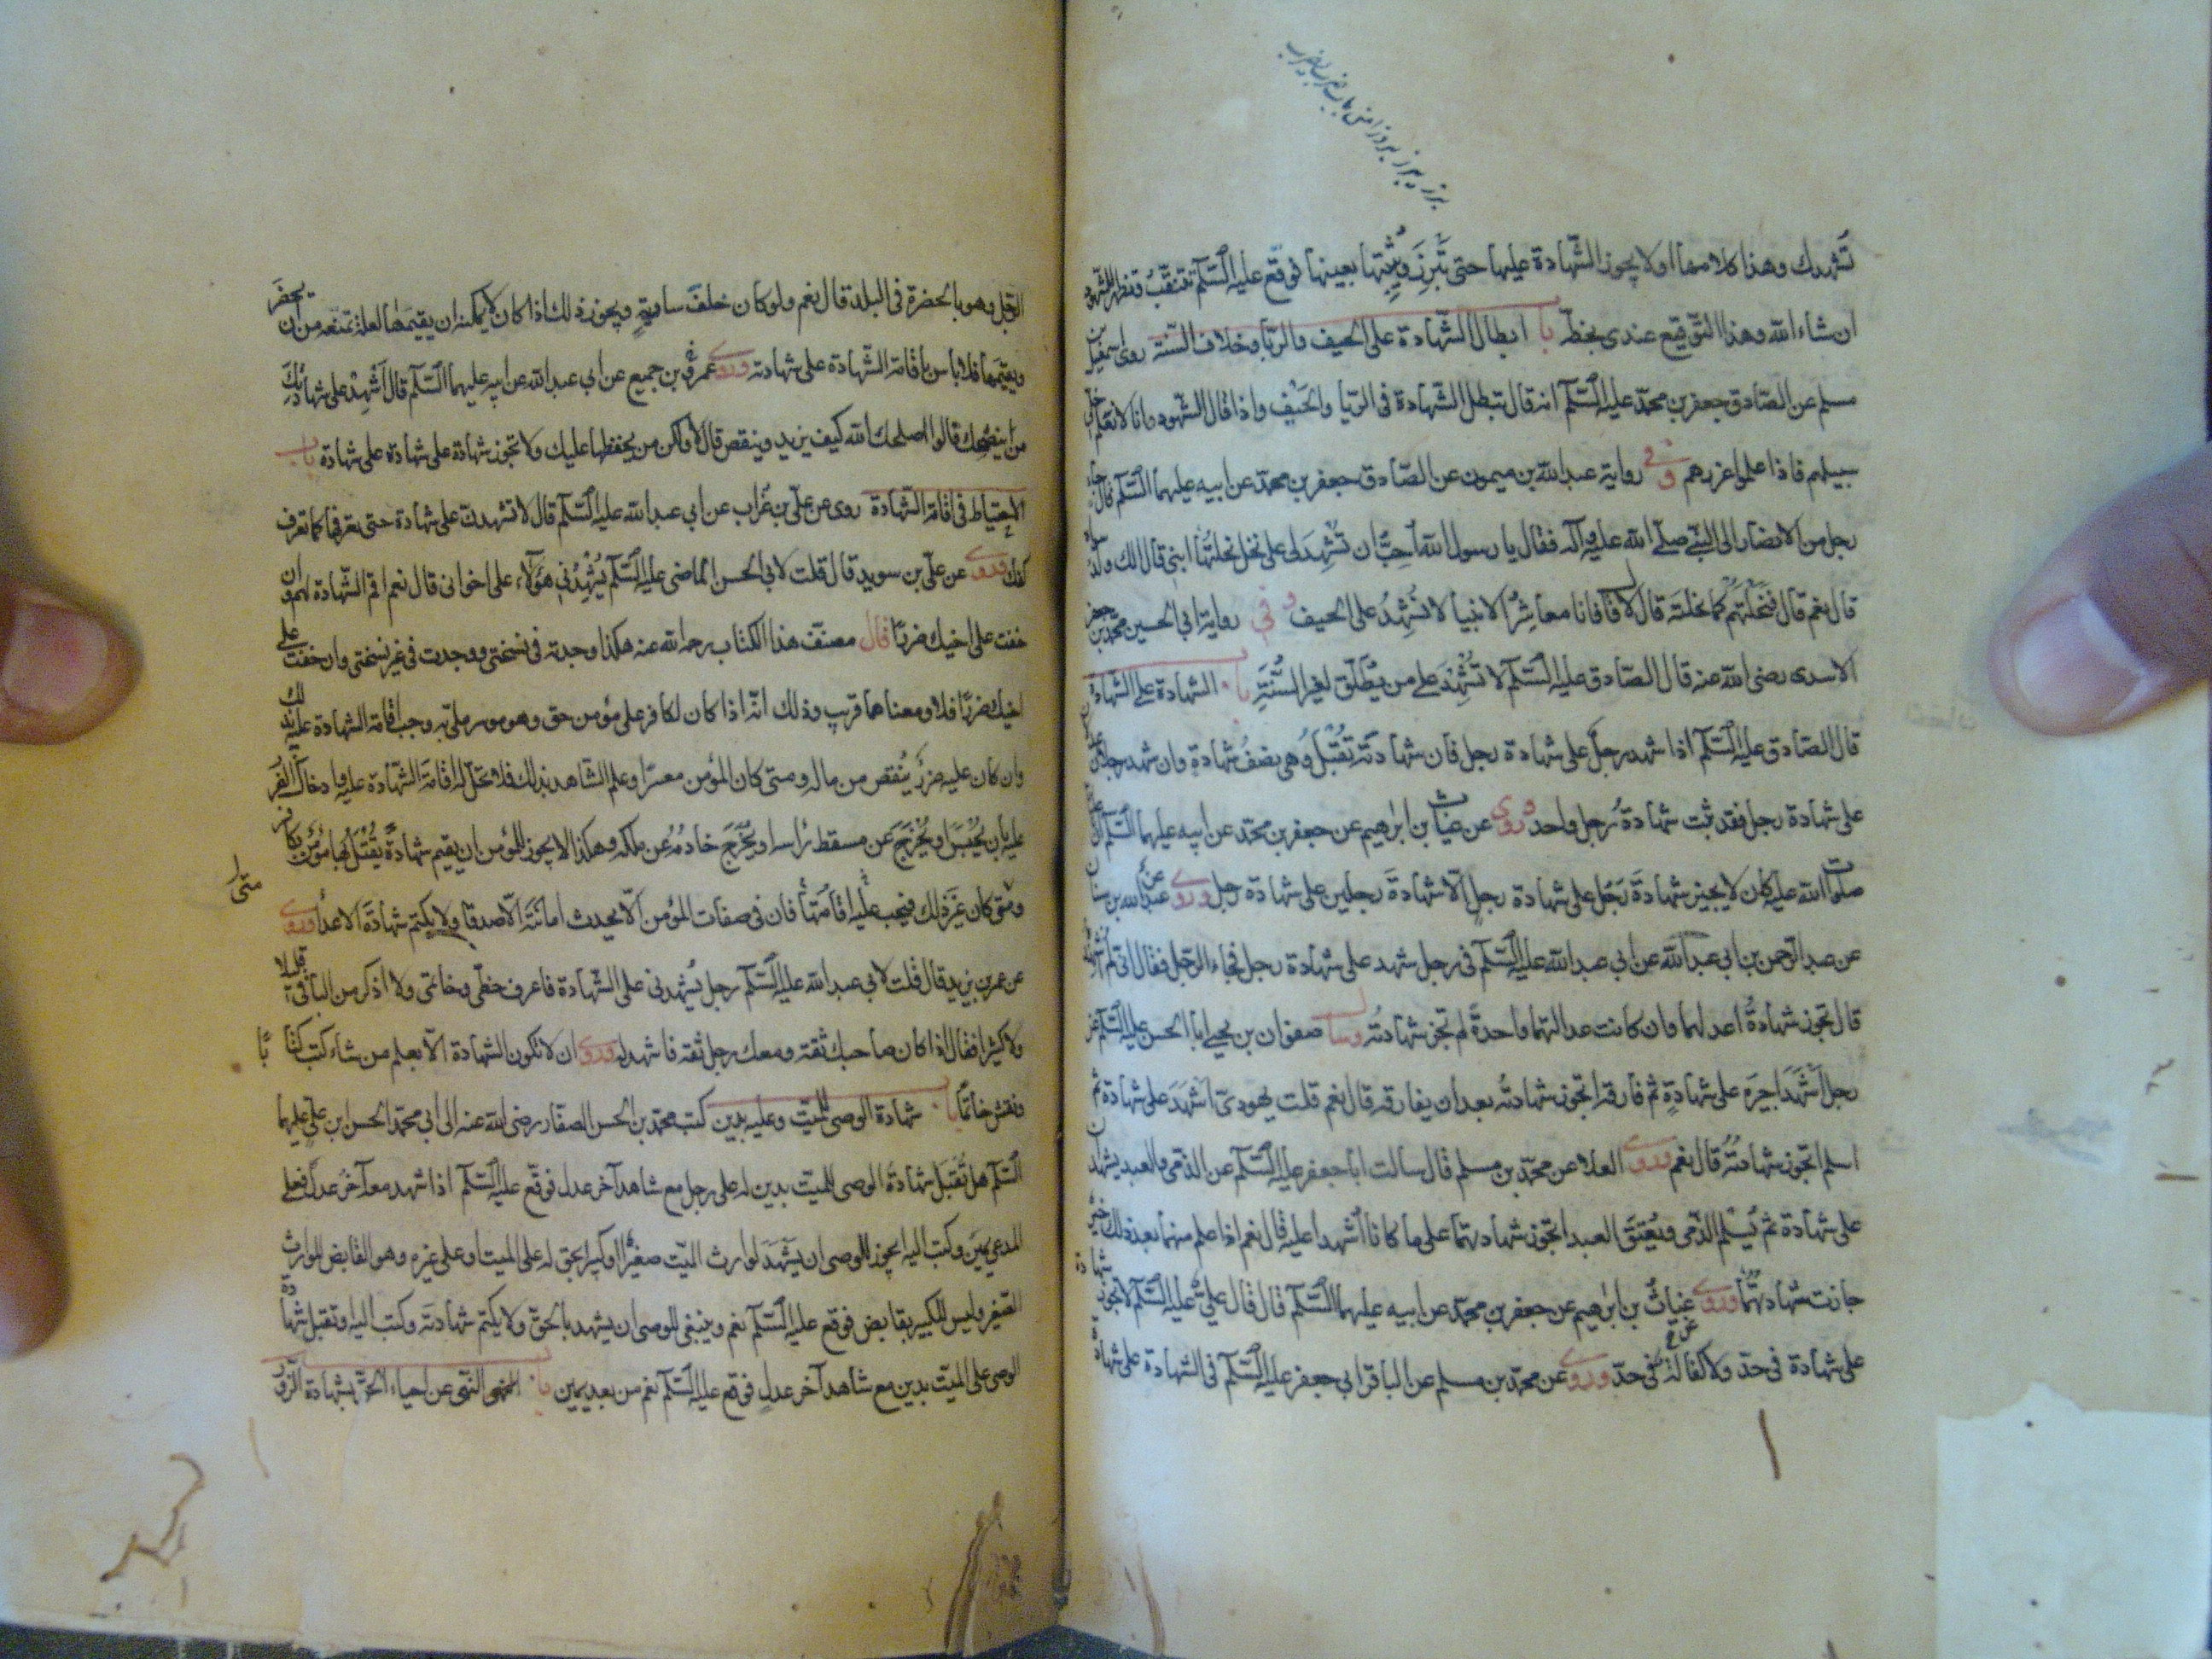 برز یبرز بروزا من باب ضرب یضرب
تشهدك وهذا كلامها او لا يجوز الشهادة عليها حتى تبرز ويثبتها بعينها فوقع عليه السلم تتنقب وتظهر للشهود
ان شاء الله وهذا التوقيع عندى بخطه با ابطال الشهادة على الحيف والربا وخلاف السنة روى اسمعيل بن
مسلم عن الصادق جعفر بن محمد عليه السلم انه قال تبطل الشهادة فى الربا والحيف واذا قال الشهود وانا لا نعلم خلى
سبيلهم فاذا علموا عزرهم وفى رواية عبد الله بن ميمون عن الصادق جعفر بن محمد عن ابيه عليهما السلم قال جاء
رجل من الانصار الى النبي صلى الله عليه وآله فقال يا رسول الله احب ان تشهد لى على نخل نحلتها ابنى قال الك ولد سواه
قال نعم قال فنحلتهم كما نحلته قال لا قال فانا معاشر الانبيا لا نشهد على الحيف وفى رواية ابي الحسين محمد بن جعفر
الاسدى رضى الله عنه قال الصادق عليه السلم لا تشهد على من يطلق لغير السنة با الشهادة على الشهادة
قال الصادق عليه السلم اذا شهد رجل على شهادة رجل فان شهادته تقبل وهى نصف شهادة وان شهد رجلان
على شهادة رجل فقد ثبت شهادة رجل واحد وروى عن غياث بن ابرهيم عن جعفر بن محمد عن ابيه عليهما السلم ان عليا
صلوات الله عليه كان لا يجيز شهادة رجل على شهادة رجل الا شهادة رجلين على شهادة رجل وروى عن عبد الله بن سنان
عن عبد الرحمن بن ابي عبد الله عن ابي عبد الله عليه السلم فى رجل شهد على شهادة رجل فجاء الرجل فقال انى لم اشهده
قال تجوز شهادة اعدلهما وان كانت عدالتهما واحدة لم تجز شهادته وسأل صفوان بن يحيى ابا الحسن عليه السلم عن
رجل اشهد اجيره على شهادة ثم فارقه اتجوز شهادته بعد ان يفارقه قال نعم قلت يهودى اشهد على شهادة ثم
اسلم اتجوز شهادته قال نعم وروى العلا عن محمد بن مسلم قال سالت ابا جعفر عليه السلم عن الذمى والعبد يشهدان
على شهادة ثم يسلم الذمى ويعتق العبد اتجوز شهادتهما على ما كانا اشهدا عليه قال نعم اذا علم منهما بعد ذلك خير
جازت شهادتهما وروى غياث بن ابرهيم عن جعفر بن محمد عن ابيه عليهما السلم قال قال علي عليه السلم لا تجوز شهادة
على شهادة فى حد ولا كفالة فى حد وروى عن محمد بن مسلم عن الباقر ابي جعفر عليه السلم فى الشهادة على شهادة
الرجل وهو بالحضرة فى البلد قال نعم ولو كان خلف سارية ويجوز ذلك اذا كان لا يمكنه ان يقيمها لعلة تمنعه من ان يحضر
ويقيمها فلا باس باقامة الشهادة على شهادته وروى عمرو بن جميع عن ابي عبد الله عن ابيه عليهما السلم قال اشهد على شهادتك
من ينصحك قالوا اصلحك الله كيف يزيد وينقص قال لا ولكن من يحفظها عليك ولا تجوز شهادة على شهادة على شهادة باب
الاحتياط فى اقامة الشهادة روى عن على بن غراب عن ابي عبد الله عليه السلم قال لا تشهدن على شهادة حتى تعرفها كما تعرف
كفك وروى عن على بن سويد قال قلت لابي الحسن الماضى عليه السلم يشهدنى هؤلاء على اخوانى قال نعم اقم الشهادة لهم وان
خفت على اخيك ضررا قال مصنف هذا الكتاب رحمه الله عنه هكذا وجدته فى نسختى ووجدت فى غير نسختى وان خفت على
اخيك ضررا فلا ومعناهما قريب وذلك انه اذا كان لكافر على مؤمن حق وهو موسر ملى به وجب اقامة الشهادة عليه بذلك
وان كان عليه ضرر ينقص من ماله ومتى كان المؤمن معسرا وعلم الشاهد بذلك فلا تحل له اقامة الشهادة عليه وادخال الضرر
عليه بان يحبس او يخرج عن مسقط راسه او يخرج خادمه عن ملكه وهكذا لا يجوز للمؤمن ان يقيم شهادة يقتل بها مؤمن بكافر
ومتى كان غير ذلك فيجب عليه اقامتها فان فى صفات المؤمن الا يحدث امانته الاصدقا ولا يكتم شهادة الاعدا وروى
عن عمر بن يزيد قال قلت لابي عبد الله عليه السلم رجل يشهدنى على الشهادة فاعرف خطى وخاتمى ولا اذكر من الباقى قليلا
ولا كثيرا فقال اذا كان صاحبك ثقة ومعك رجل ثقة فاشهد له وروى ان لا تكون الشهادة الا بعلم من شاء كتب كتابا
ونقش خاتما با شهادة الوصى للميت وعليه بدين كتب محمد بن الحسن الصفار رضى الله عنه الى ابي محمد الحسن بن على عليهما
السلم هل تقبل شهادة الوصى للميت بدين له على رجل مع شاهد آخر عدل فوقع عليه السلم اذا شهد معه آخر عدل فعلى
المدعى يمين وكتب اليه ايجوز للوصى ان يشهد لوارث الميت صغيرا او كبيرا بحق له على الميت او على غيره وهو القابض للوارث
الصغير وليس للكبير بقابض فوقع عليه السلم نعم وينبغى للوصى ان يشهد بالحق ولا يكتم شهادته وكتب اليه او تقبل شهادة
الوصى على الميت بدين مع شاهد آخر عدل فوقع عليه السلم نعم من بعد يمين با النهى عن احياء الحق بشهادة الزور